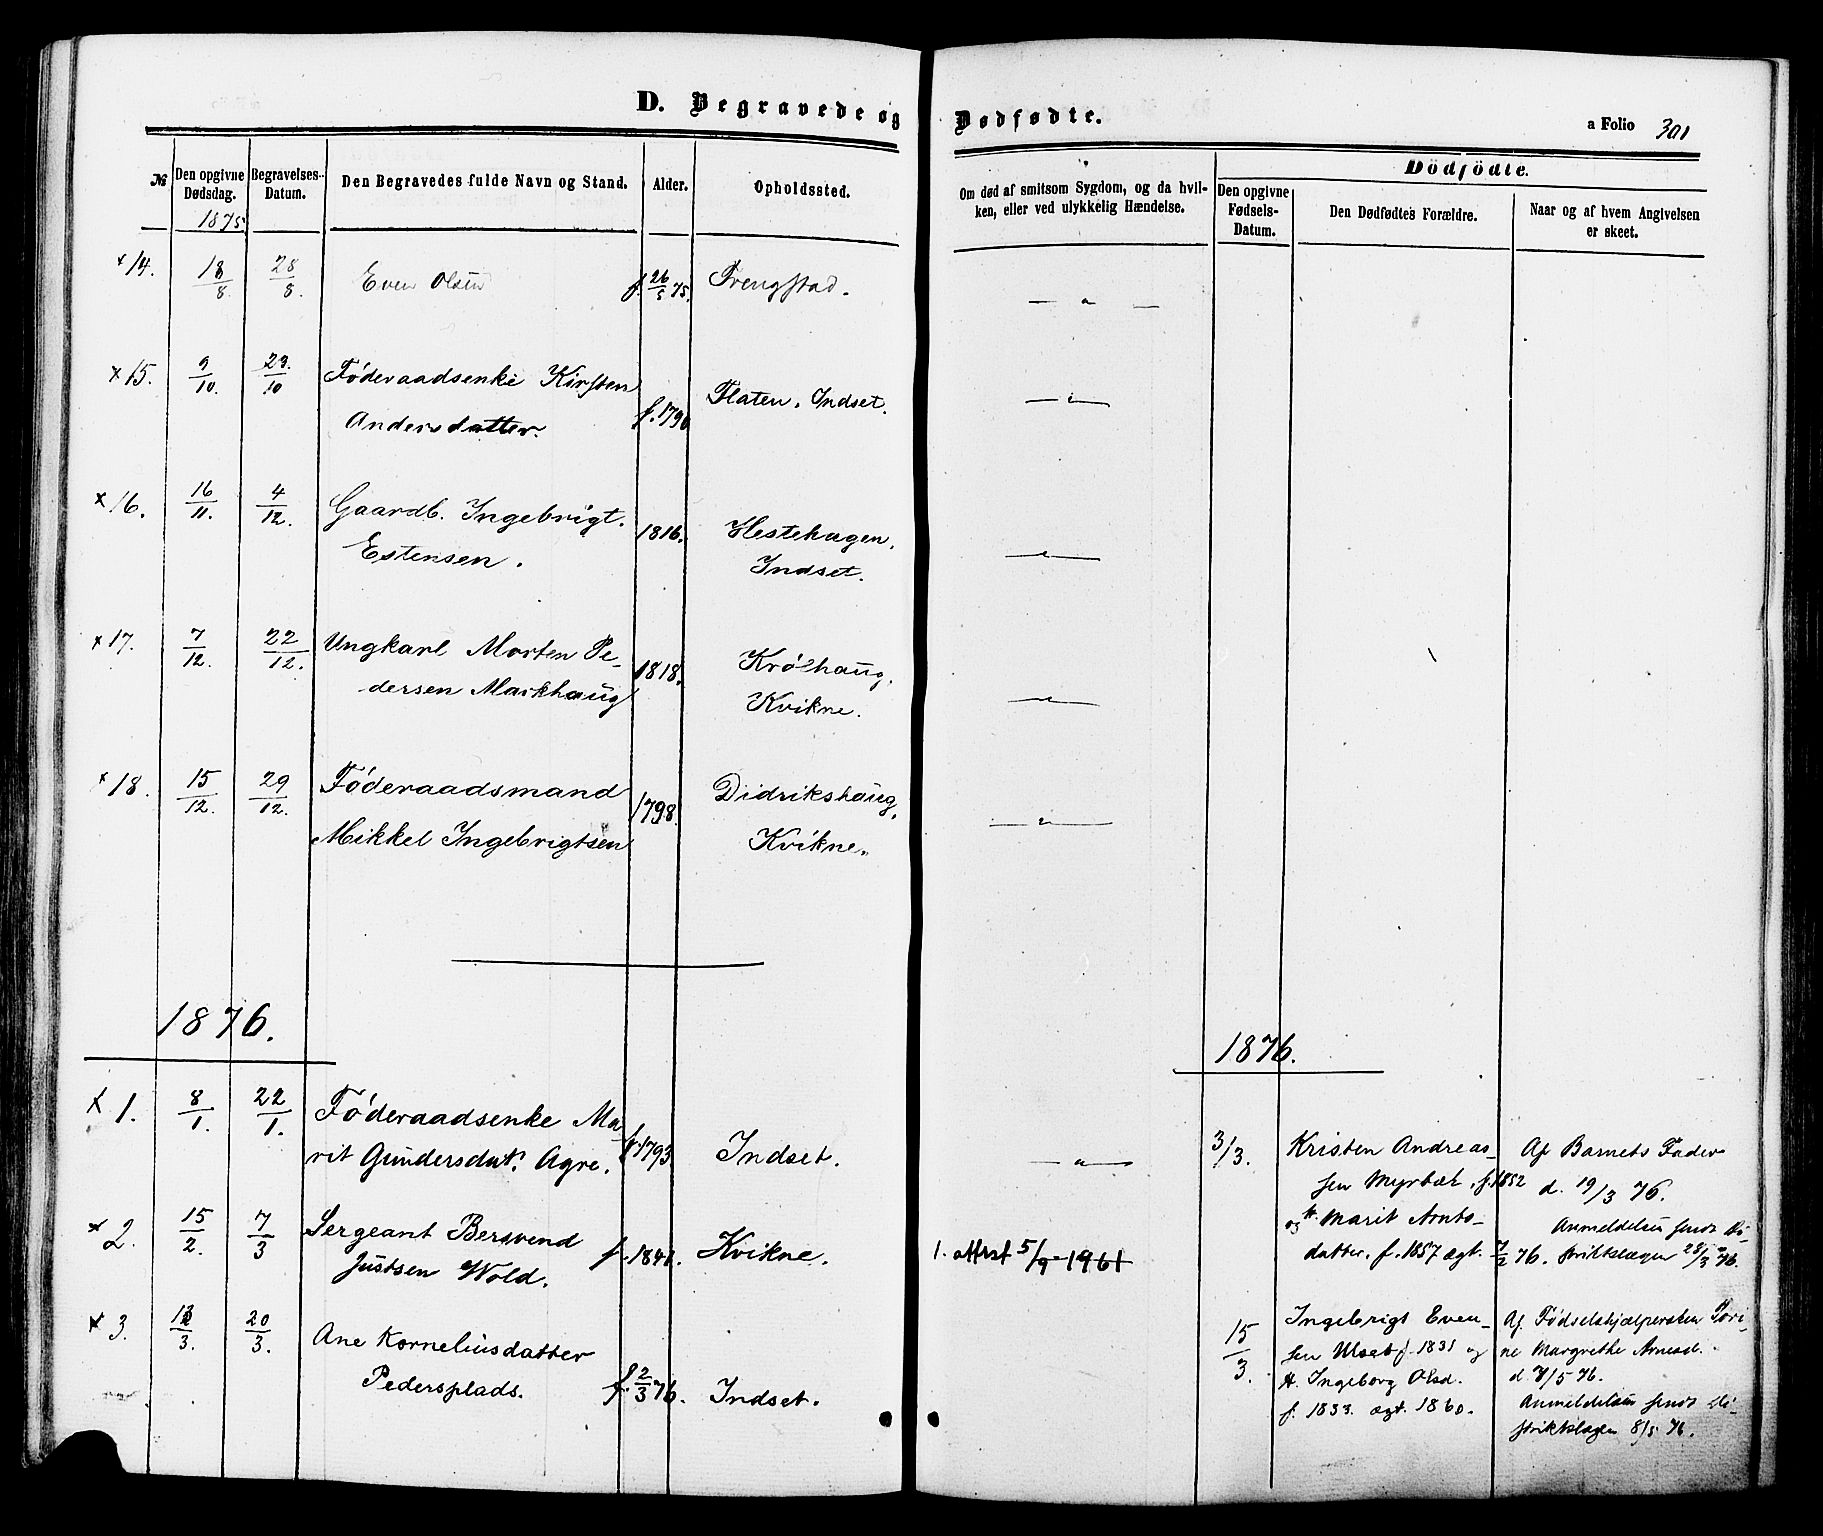 D. Begravede og Dødfødte.
a Folio 301
№
Den opgivne Dødsdag.
Begravelses-Datum.
Den Begravedes fulde Navn og Stand.
Alder.
Opholdssted.
Om død af smitsom Sygdom, og da hvil-
ken, eller ved ulykkelig Hændelse.
Dödfödte.
Den opgivne Fødsels-Datum.
Den Dødfødte's Forældre.
Naar og af hvem Angivelsen
er skeet.
1875
×14. 18/8. 28/8. Even Olsen f. 26/5 75. Frengstad. — " —
×15. 9/10. 23./10 Føderaadsenke Kirsten
Andersdatter. f. 1790 Flaten, Indset. — " —
×16. 16/11. 4/12. Gaardb. Ingebrigt
Estensen. 1816. Hestehagen,
Indset. — " —
×17. 7/12. 22/12. Ungkarl Morten Pe-
dersen Markhaug 1818. Krølhaug,
Kvikne. — " —
×18. 15/12. 29/12. Føderaadsmand
Mikkel Ingebrigtsen 1798. Didrikshaug,
Kvikne. — " —
1876.
×1. 8/1. 22/1. Føderaadsenke Ma-
rit Gundersdatr. Agre. f. 1793 Indset. — " —
×2. 15/2. 7/3 Sergeant Bersvend
Justsen Wold. f. 1841. Kvikne.
1. attest 5/9-1961
×3. 12/3. 20/3. Ane Korneliusdatter
Pedersplads. f. 2/3 76. Indset.
1876.
3/3. Kristen Andreas-
sen Myrbæk, f. 1852
og H. Marit Arnts-
datter, f. 1857 ægt. 7/2 76.
Af Barnets Fader
d. 19/3 76.
Anmeldelsen sendt Di-
striktslægen 28/3 76.
15/3. Ingebrigt Even-
sen Ulset f. 1831 og
H. Ingeborg Olsd.
f. 1833. ægt. 1860.
Af Fødselshjælpersken
Margrethe Arnesd.
d. 7/5 76.
Anmeldelsen sendt Di-
striktslægen 8/5 76.